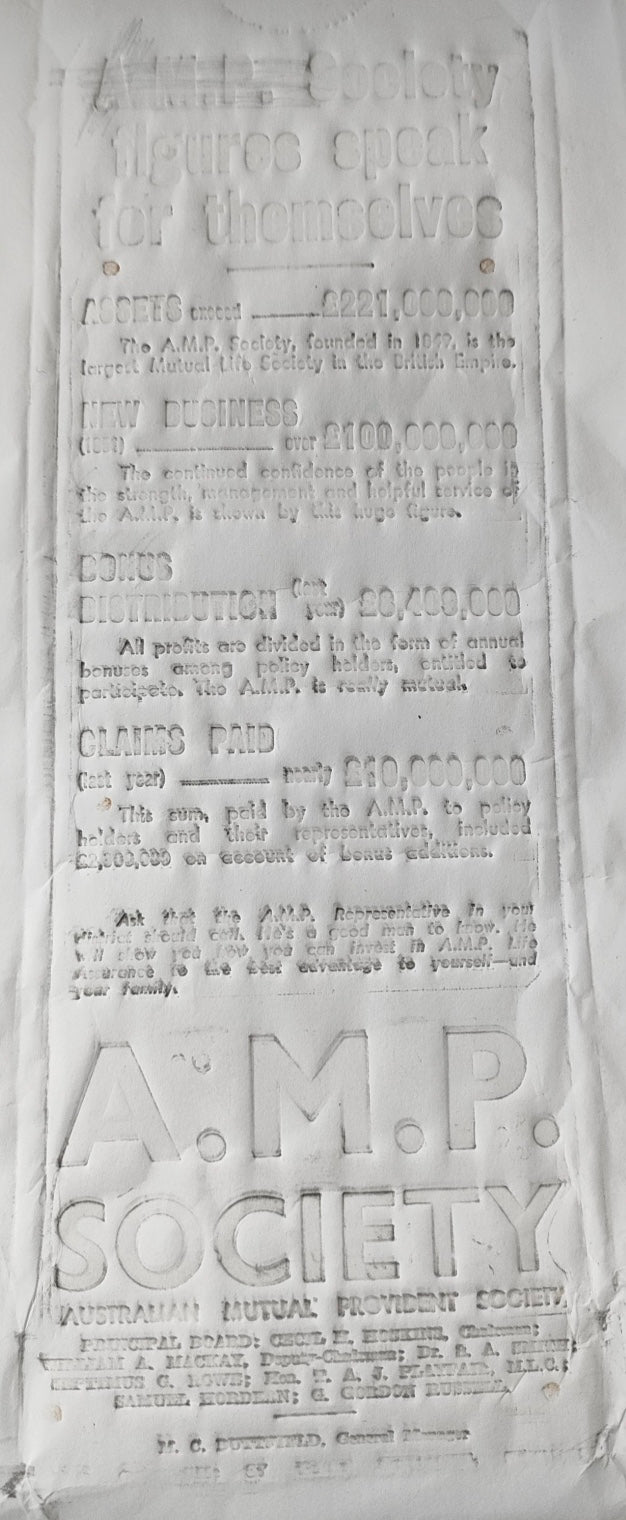 A.M.P. Society
figures speak
for themselves
ASSETS exceed £221,000,000
The A.M.P. Society, founded in is the
largest Mutual Life Society in the British Empire.
NEW BUSINESS
over £100,000,000
The continued confidence of the people in
the strength, management and helpful service of
the A.M.P. is shown by this huge figure.
BONUS
DISTRIBUTION (last year)
All profits are divided in the form of annual
bonuses among policy holders, entitled to
participate. The A.M.P. is really mutual.
CLAIMS PAID
(last year) nearly £10,000,000
This sum, paid by the A.M.P. to policy
holders and their representatives, included
on account of bonus additions.
Ask that the A.M.P. Representative in your
district should call. He's a good man to know. He
will show you how you can invest in A.M.P. Life
Assurance to the best advantage to yourself—and
your family.
A.M.P.
SOCIETY
AUSTRALIAN MUTUAL PROVIDENT SOCIETY
PRINCIPAL BOARD: CECIL H. HOSKINS, Chairman;
WILLIAM A. MACKAY, Deputy-Chairman; Dr.
SEPTIMUS G. ROWE; Hon. T. A. J. PLAYFAIR, M.L.C.;
SAMUEL HORDERN; G. GORDON RUSSELL.
M. C. BUTTFIELD, General Manager